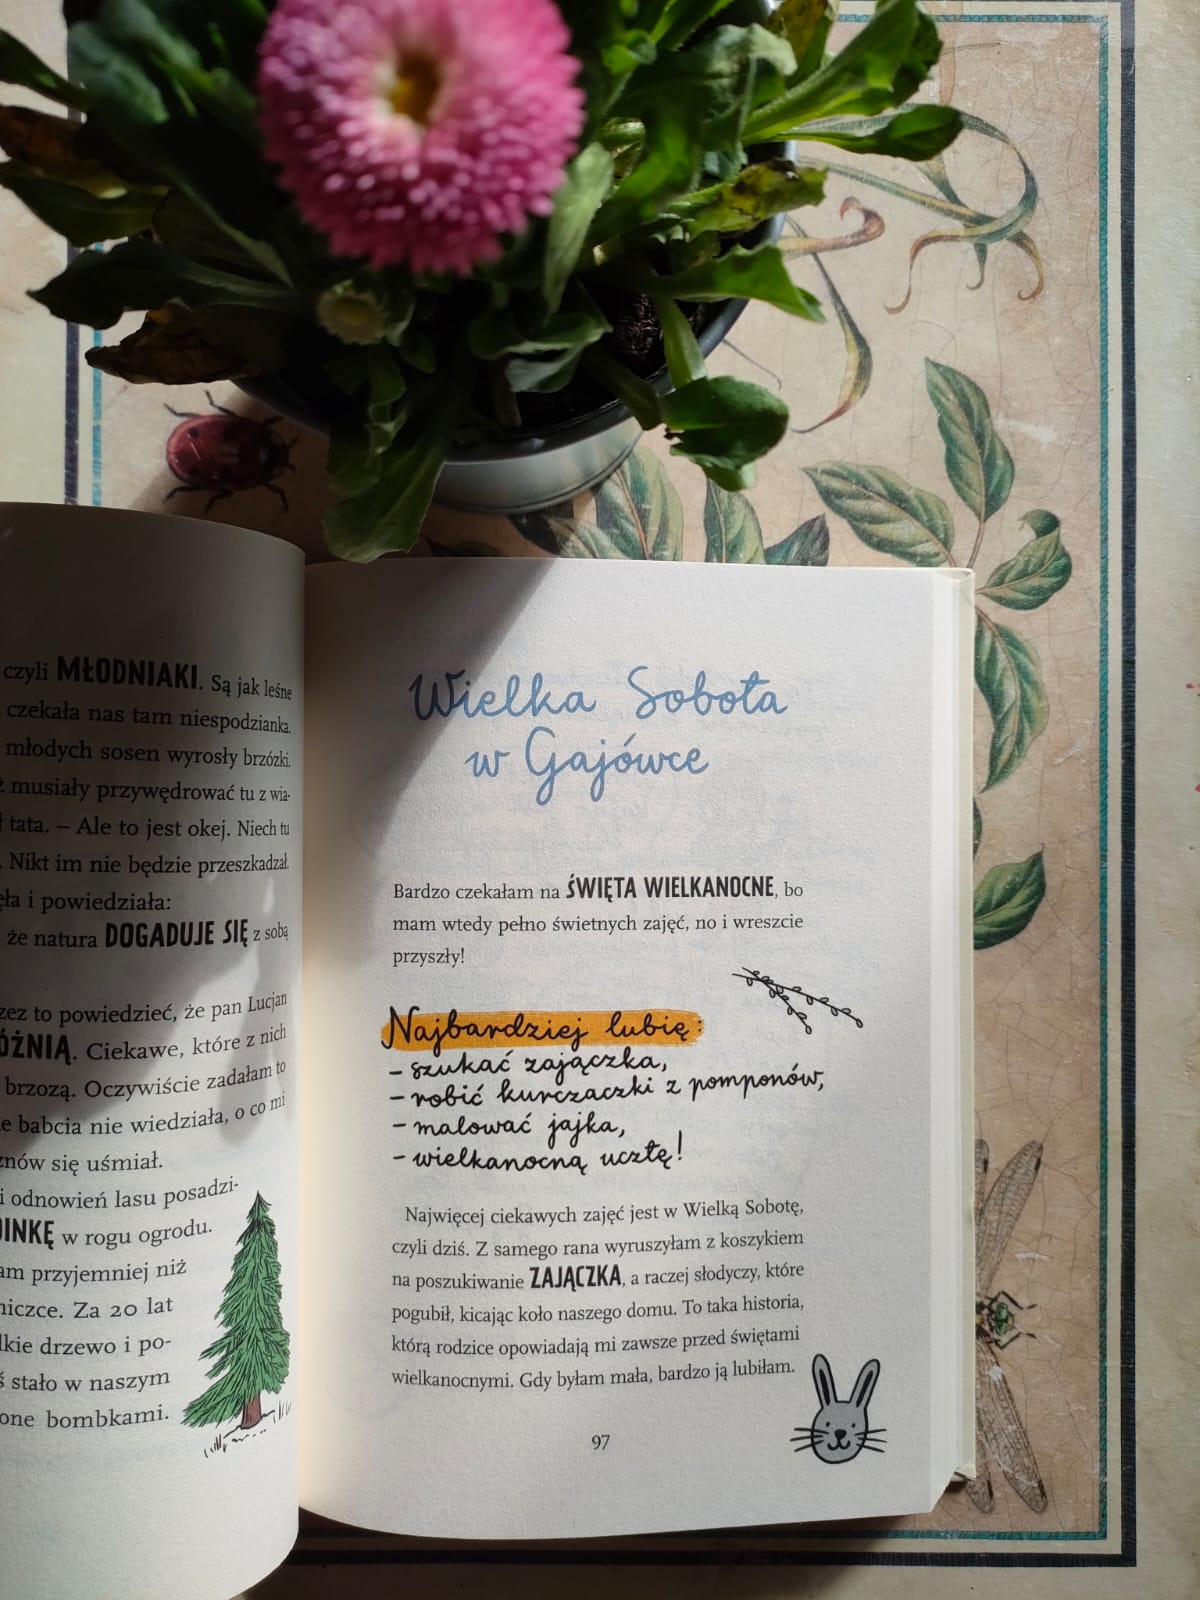 czyli MŁODNIAKI. Są jak leśne
czekała nas tam niespodzianka.
młodych sosen wyrosły brzózki.
musiały przywędrować tu z wia-
tata. – Ale to jest okej. Niech tu
. Nikt im nie będzie przeszkadzał.
i powiedziała:
że natura DOGADUJE SIĘ z sobą
to powiedzieć, że pan Lucjan
. Ciekawe, które z nich
brzozą. Oczywiście zadałam to
babcia nie wiedziała, o co mi
znów się uśmiał.
i odnowień lasu posadzi-
w rogu ogrodu.
przyjemniej niż
Za 20 lat
drzewo i po-
stało w naszym
bombkami.
Wielka Sobota
w Gajówce
Bardzo czekałam na ŚWIĘTA WIELKANOCNE, bo
mam wtedy pełno świetnych zajęć, no i wreszcie
przyszły!
Najbardziej lubię:
– szukać zajączka,
– robić kurczaczki z pomponów,
– malować jajka,
– wielkanocną ucztę!
Najwięcej ciekawych zajęć jest w Wielką Sobotę,
czyli dziś. Z samego rana wyruszyłam z koszykiem
na poszukiwanie ZAJĄCZKA, a raczej słodyczy, które
pogubił, kicając koło naszego domu. To taka historia,
którą rodzice opowiadają mi zawsze przed świętami
wielkanocnymi. Gdy byłam mała, bardzo ją lubiłam.
97